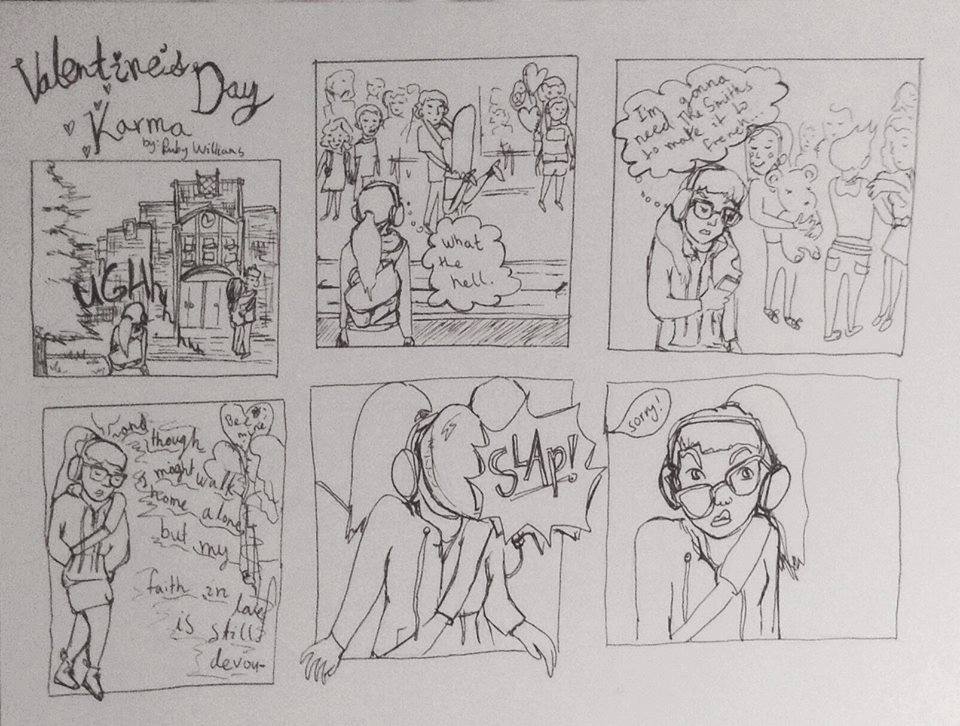 Valentine's
Day
Karma
by: Ruby Williams
UGHh
what
the
hell.
I'm gonna
need The Smiths
to make it to
french
and
though
I might walk
home alone
but my
faith in
love
is still
devou-
Be
mine
SLAP!
sorry!